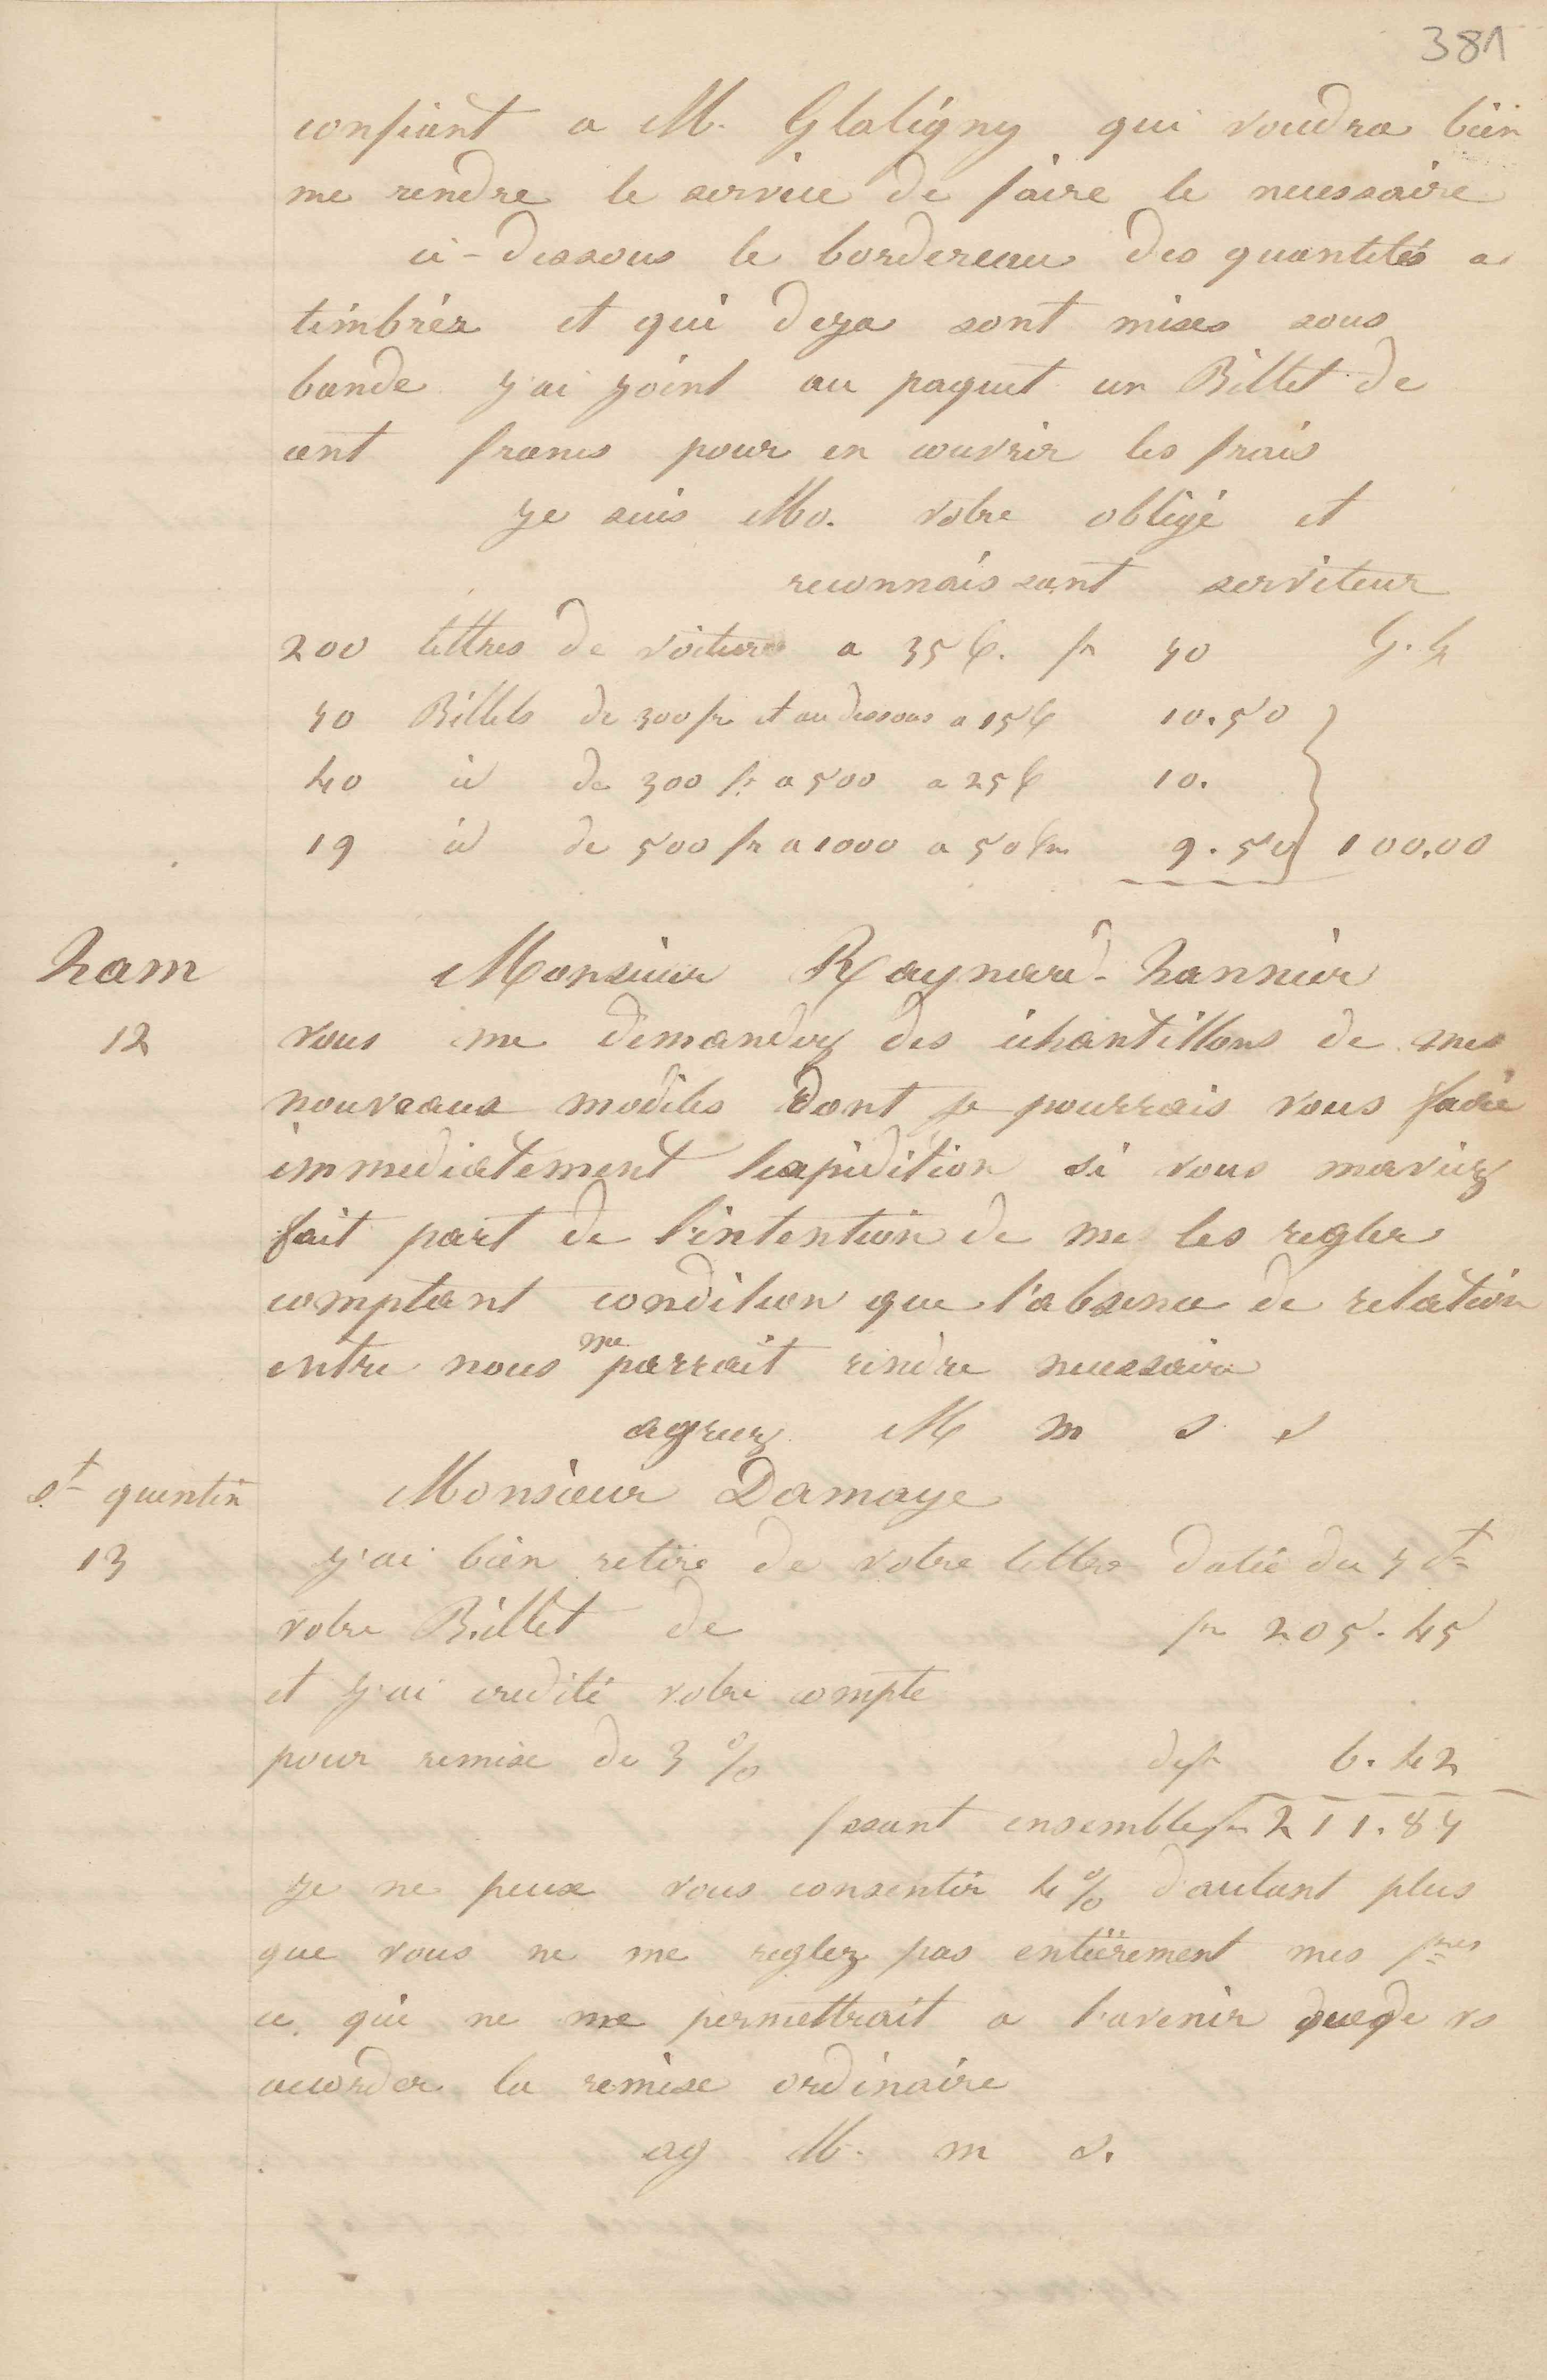 381
confiant a M. Glatigny qui voudra bien
me rendre le service de faire le necessaire
ci-dessous le bordereau des quantités a
timbrér et qui deja sont mises sous
bande j'ai joint au paquet un Billet de
cent francs pour en couvrir les frais
je suis Mo. votre obligé et
reconnaissant serviteur
200 lettres de voiture a 35 c. fr 70 G.G
70 Billets de 300 fr et au dessous a 15 c 10.50
40 id de 300 fr a 500 a 25 c 10.
19 id de 500 fr a 1000 a 50 cm 9.50 } 100.00
ham
Monsieur Raynard-hannier
12
vous me demandez des échantillons de mes
nouveaux modèles dont je pourrais vous faire
immediatement lexpidition si vous maviez
fait part de l'intention de me les regler
comptant condition que l'absence de relation
entre nous me parrait rendre necessaire
agreez M m s s
st quentin
Monsieur Damaye
13
j'ai bien retiré de votre lettre datée du 7 ct
votre Billet de fr 205.45
et j'ai credité votre compte
pour remise de 3 % de fr 6.42
fesant ensemble fr 211.87
je ne peux vous consentir 4 % d'autant plus
que vous ne me reglez pas entiérement mes fres
ce qui ne me permettrait a l'avenir que de vs
accorder la remise ordinaire
ag M. m s.